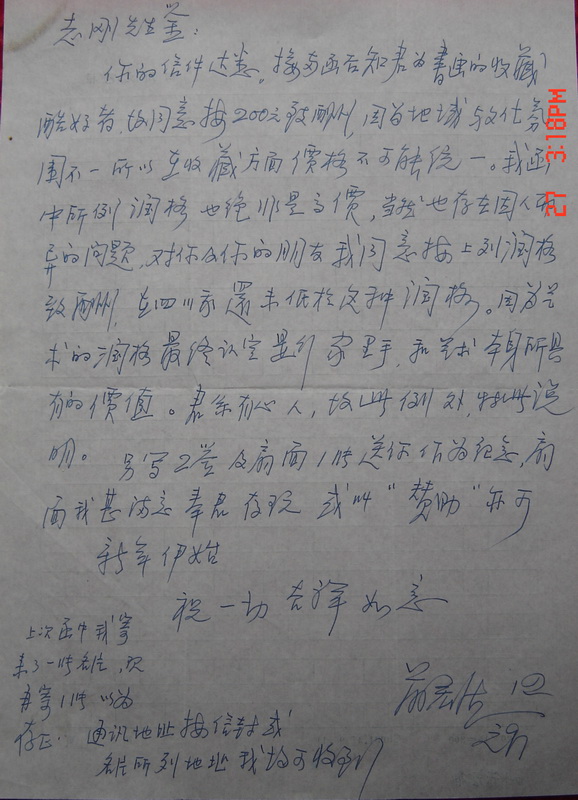 志刚先生鉴：
你的信件达悉，接手函告知君为書画的收藏
酷好者，故同意按200元致酬，因为地域与文化氛
围不一所以在收藏方面價格不可能统一。我函
中所例润格也绝非是高價，当然也存在因人而
异的问题，对你及你的朋友我同意按上列润格
致酬，在四川我還未低於这种润格。因为艺
术的润格最终认定是行家里手，和艺术本身所具
有的價值。君系有心人，故此例外，特此说
明。另写2签及扇面1件送你作为纪念，扇
面我甚满意奉君存玩或叫“赞助”亦可
新年伊始
祝一切吉祥如意
上次函中我寄
来了一件名片，现
再寄1件以为
存正。通讯地址按信封或
名片所列地址我均可收到
元月
27 3:18PM